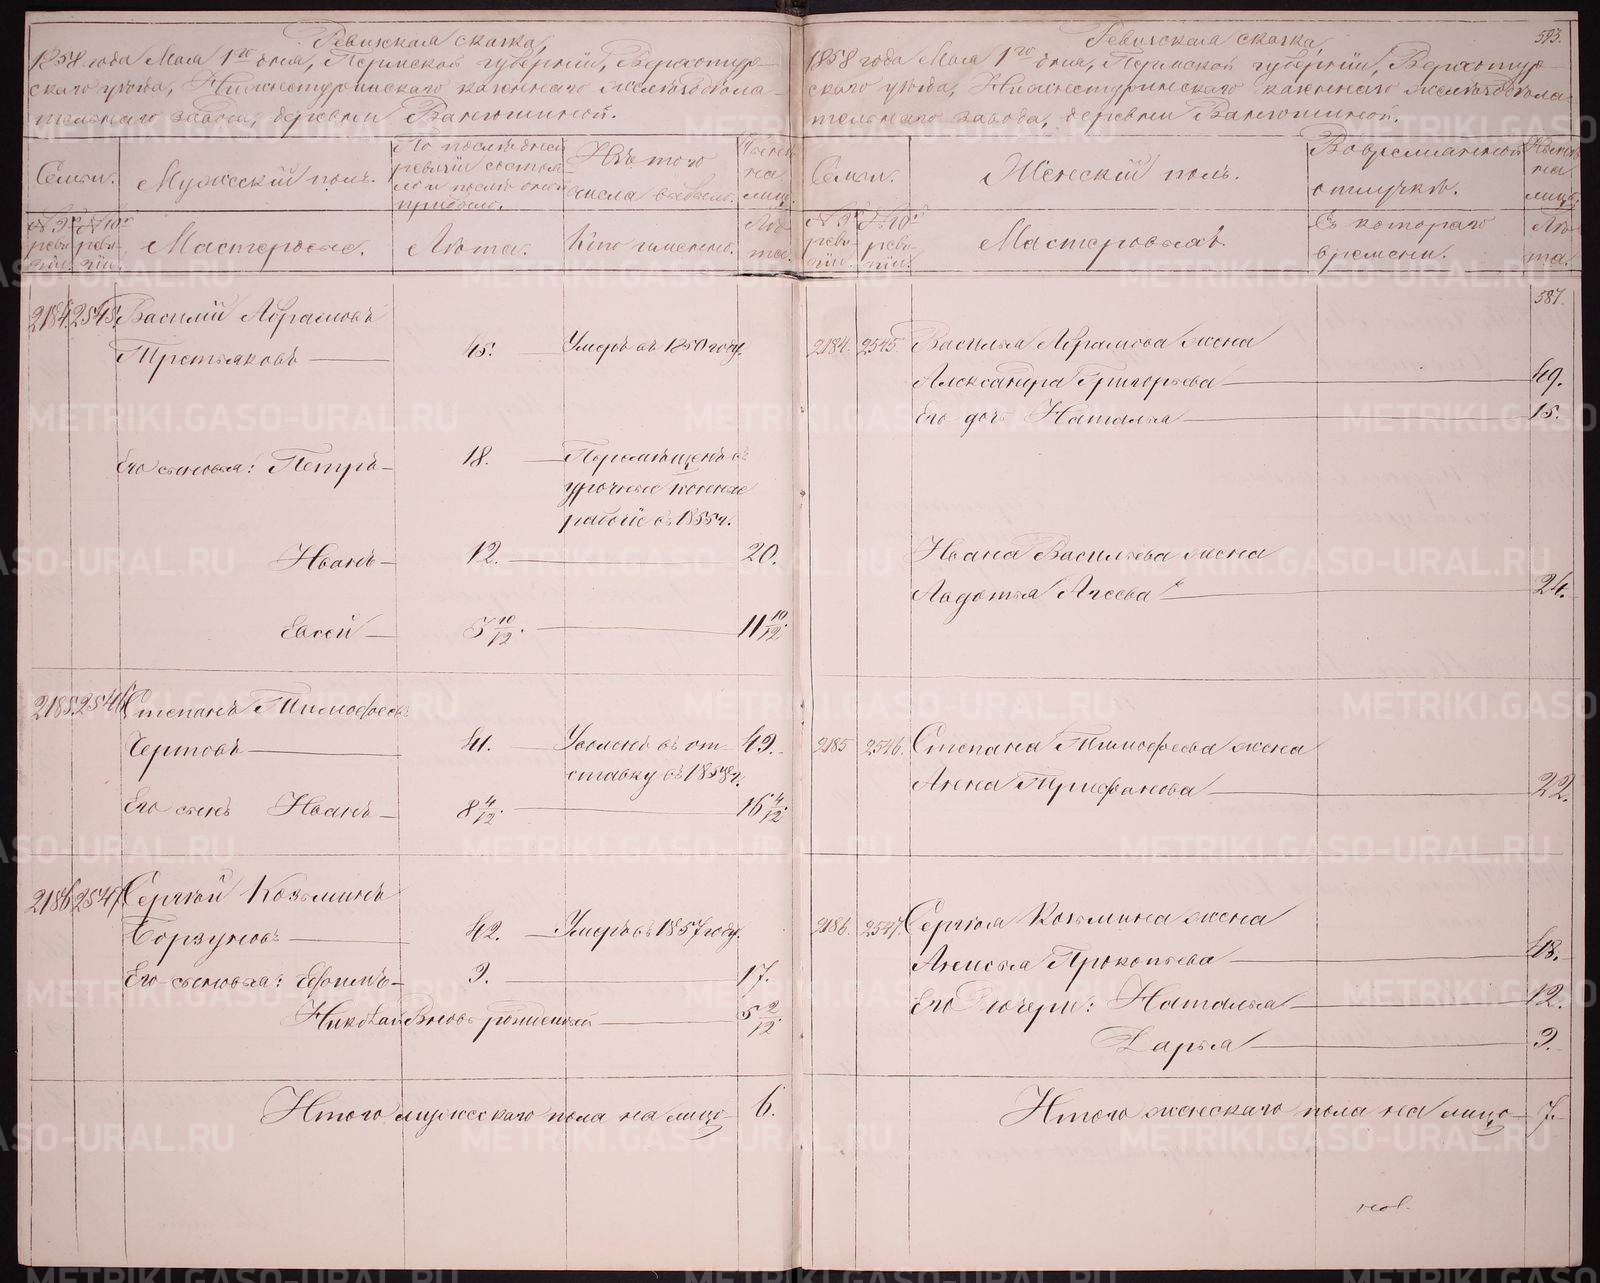 Ревизская сказка,
1858 года Мая 1го дня, Пермской губернiи, Верхотур-
скаго уѣзда, Нижнетуринскаго казеннаго желѣзодѣла-
тельнаго завода, деревни Валюшиной.
Семьи.
Мужескiй полъ.
По послѣдней
ревизiи состоя-
ло и послѣ оной
прибыло.
Изъ того
числа выбыло.
на
лицо.
№ 9й
реви-
зiи.
№ 10й
реви-
зiи.
Мастеровые.
Лѣта.
Кто именно.
Лѣ-
та.
2184. 2545. Василiй Абрамовъ
Третьяковъ — 45. Умеръ въ 1850 году.
Его сыновья: Петръ — 18. — Перемѣщенъ въ
урочные конные
рабочiе въ 1855 г.
Иванъ — 12. — 20.
Евсей — 3 10/12. — 11 10/12.
2185. 2546. Степанъ Тимофеевъ
Чертовъ — 41. — Уволенъ въ от- 49.
ставку въ 1858 г.
Его сынъ Иванъ — 8 4/12. — 16 4/12.
2186. 2547. Сергѣй Козьминъ
Борзуновъ — 42. — Умеръ въ 1857 году.
Его сыновья: Ефимъ — 9. — 17.
Николай Вновь рожденный — 5 2/12.
Итого мужескаго пола на лицо 6.
593.
Ревизская сказка,
1858 года Мая 1го дня, Пермской губернiи, Верхотур-
скаго уѣзда, Нижнетуринскаго казеннаго желѣзодѣла-
тельнаго завода, деревни Валюшиной.
Семьи.
Женскiй полъ.
Во временной
отлучкѣ.
на
лицо.
№ 9й
реви-
зiи.
№ 10й
реви-
зiи.
Мастеровыхъ.
Съ котораго
времени.
Лѣ-
та.
587.
2184. 2545. Василья Абрамова жена
Александра Григорьева — 49.
Его дочь Наталья — 15.
Ивана Васильева жена
Авдотья — 24.
2185 2546. Степана Тимофеева жена
Анна Трифанова — 22.
2186. 2547. Сергѣя Козьмина жена
Анисья Прокопьева — 48.
Его дочери: Наталья — 12.
Дарья — 9.
Итого женскаго пола на лицо 7.
METRIKI.GASO-URAL.RU